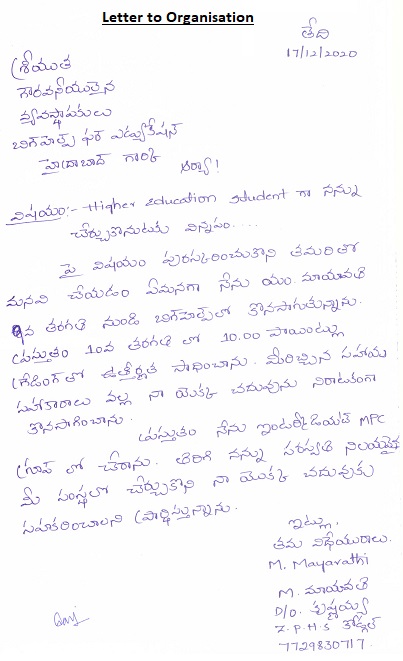 Letter to Organisation
తేది
17/12/2020
శ్రీయుత
గౌరవనీయులైన
వ్యవస్థాపకులు
బిగ్‌హెల్ప్ ఫర్ ఎడ్యుకేషన్
హైద్రాబాద్ గారికి
ఆర్యా!
విషయం:- Higher Education student గా నన్ను
చేర్చుకొనుటకు విన్నపం....
పై విషయం పురస్కరించుకొని తమరితో
మనవి చేయడం ఏమనగా నేను యం. మాయావతి
9వ తరగతి నుండి బిగ్‌హెల్ప్‌లో కొనసాగుతున్నాను.
ప్రస్తుతం 10వ తరగతి లో 10.00 పాయింట్లు
గ్రేడింగ్ తో ఉత్తీర్ణత సాధించాను. మీరిచ్చిన సహాయ
సహకారాలు వల్ల నా యొక్క చదువును నిరాటంకంగా
కొనసాగించాను.
ప్రస్తుతం నేను ఇంటర్మీడియట్ MPC
గ్రూప్ లో చేరాను. తిరిగి నన్ను సరస్వతి నిలయమైన
మీ సంస్థలో చేర్చుకొని నా యొక్క చదువుకు
సహకరించాలని ప్రార్థిస్తున్నాను.
ఇట్లు,
తమ విధేయురాలు.
M. Mayavathi
M. మాయావతి
D/o. కృష్ణయ్య
Z.P.H.S కోడ్గల్
7729830717.